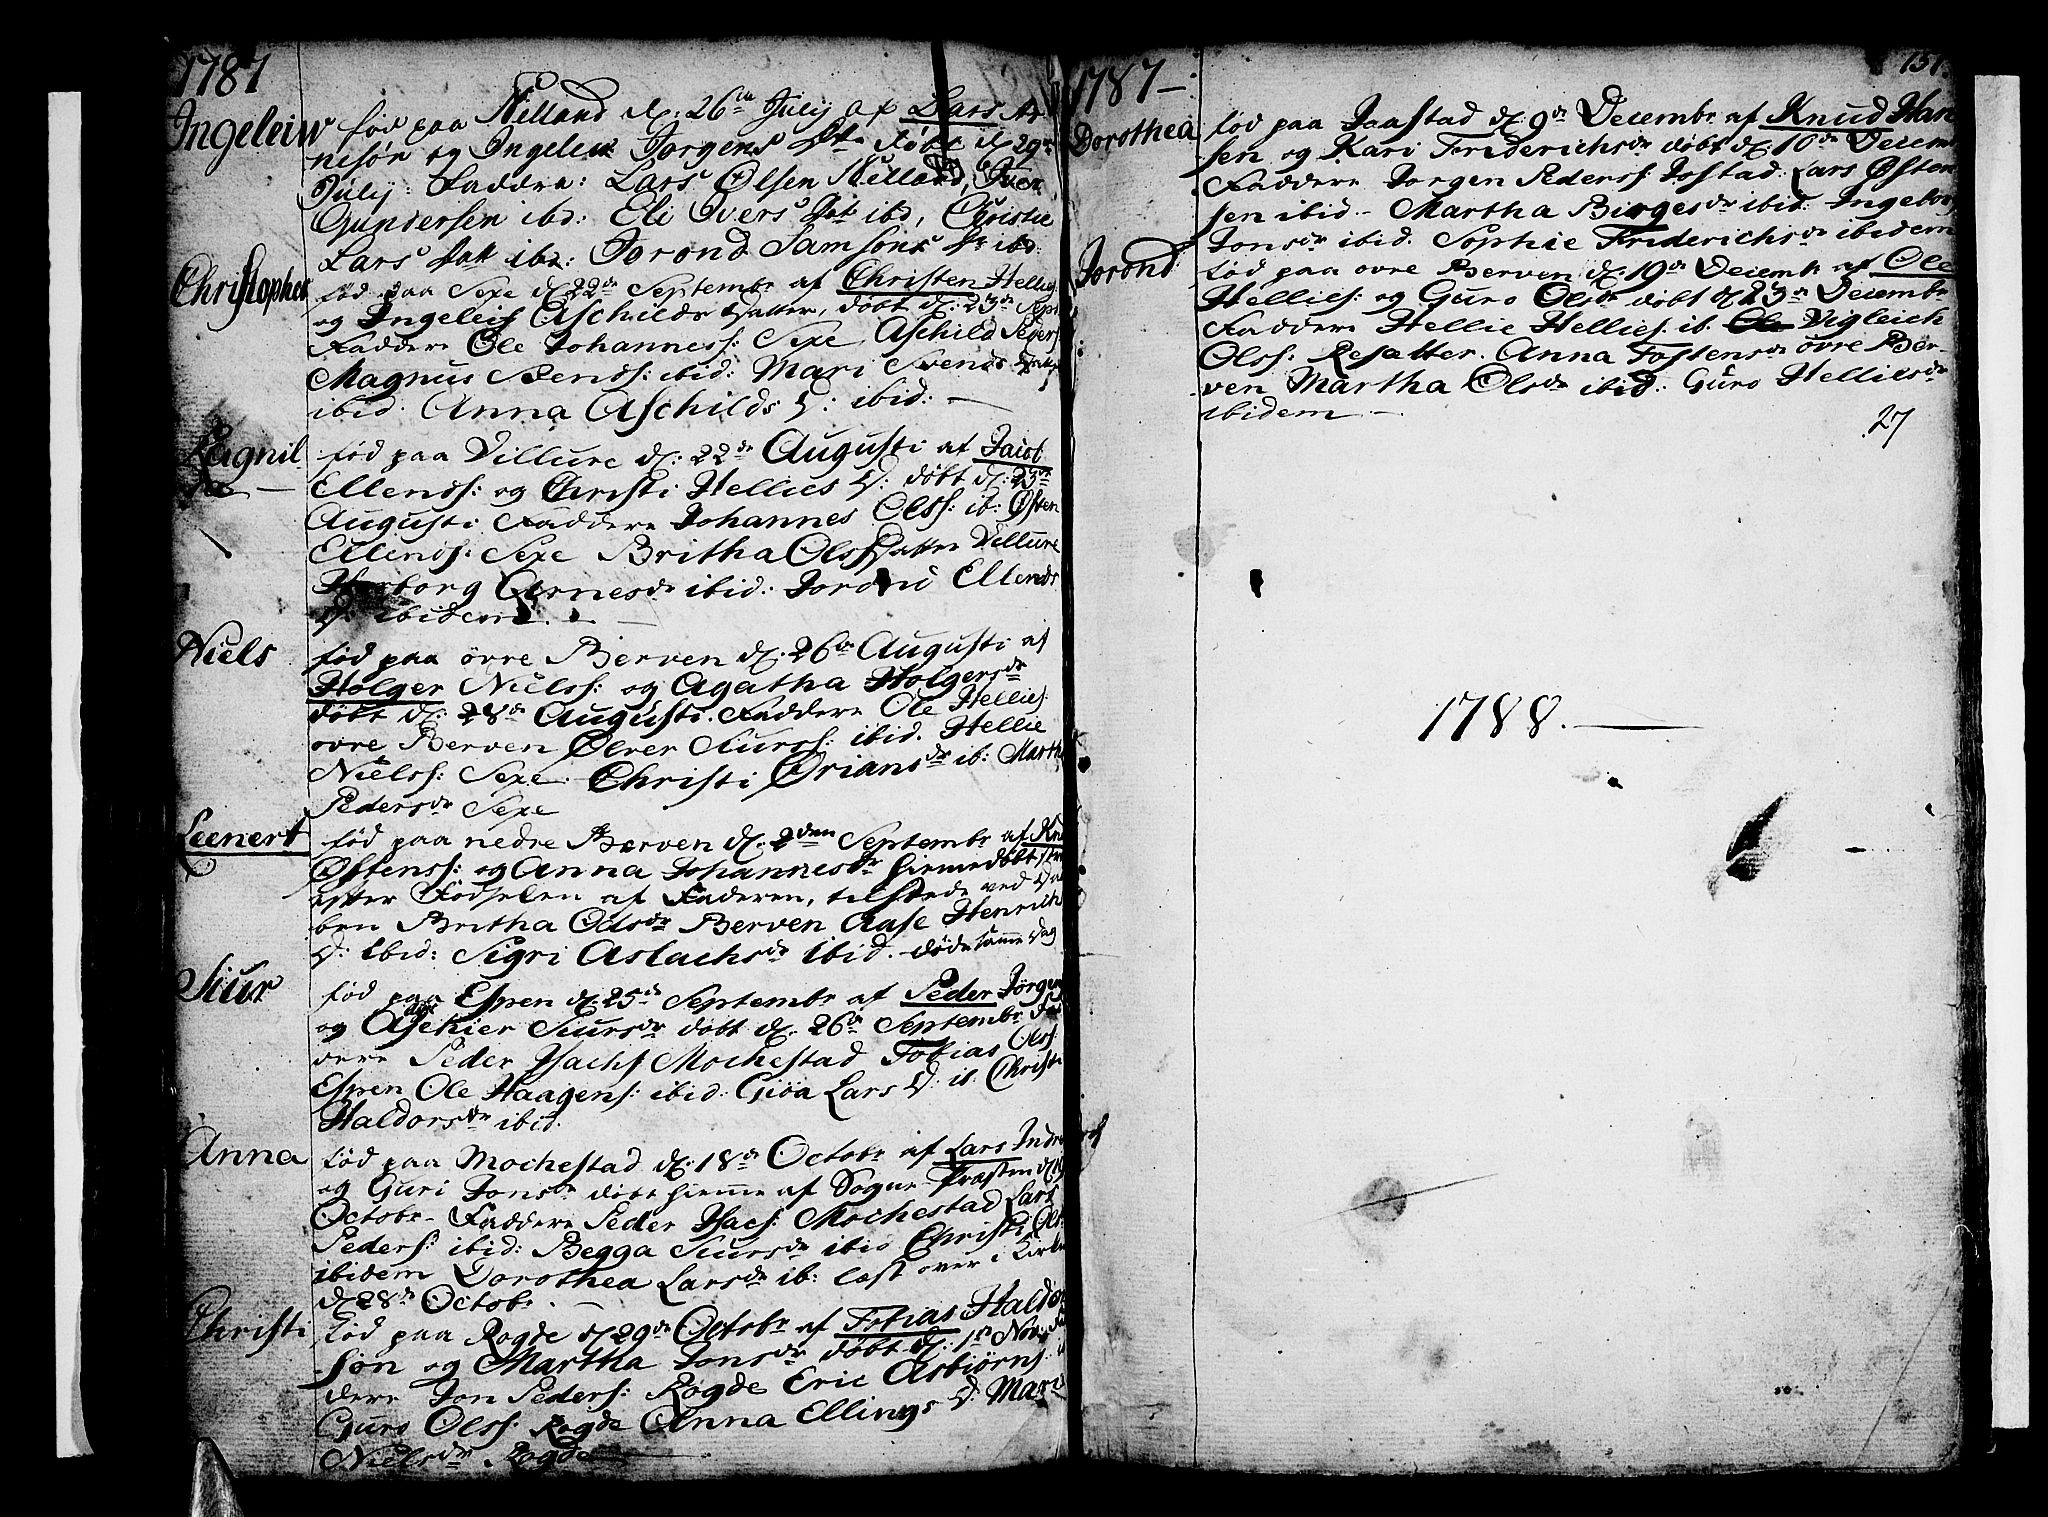 1787
Ingeleiw
fød paa Nilland d: 26de July af Lars Ar
nesøn og Ingeleiw Jorgens Dtr døbt d 29de
July: Faddre: Lars Olsen Nilland, Iver
Gundersen ibd: Eli Ivers Dat ibd, Christie
Lars Datt ibd: Jorond Samsons Dr ibd:
Christopher
fød paa Sexe d 22de Septembr af Christen Hellies
og Ingeleif Aschilds Datter, døbt d: 23de Sept
Faddere Ole Johanness: Sexe Aschild Seders
Magnus Svends: ibid: Mari Svends Datter
ibid. Anna Aschilds D: ibid: —
Ragnil
fød paa Villure d: 22de Augusti af Jacob
Ellends: og Christi Hellies D: døbt d: 23de
Augusti Faddere Johannes Olss: ib: Østen
Ellends: Sexe Britha Ols Datter Villure
Herborg Arnesdr ibid: Jorond Ellends
D: ibidem. —
Niels
fød paa øvre Berven d. 26de Augusti af
Holger Nielss: og Agatha Holgersdr
døbt d: 28de Augusti. Faddere Ole Hellies:
øvre Berven Ølver Siurss: ibid. Hellie
Nielss: Sexe. Christi Ørians dr ib: Martha
Pedersdr Sexe
Leenert
fød paa nedre Berven d. 2den Septembr af Knu
Østenss: og Anna Johannesdr hiemedøbt
efter Fødselen af Faderen, tilstede ved Daa
ben Britha Odsdr Berven Aase Henrichs
D: ibid: Sigri Aslachsdr ibid. døde samme Dag
Siur
fød paa Espen d: 25de Septembr af Peder Jørgens
og Aschier Siursdr døbt d. 26de Septembr Fad
dere Peder Isachs Mochestad Tobias Olss
Espen Ole Haagens: ibid: Giøa Lars D: ib: Christi
Haldorsdr ibid.
Anna
fød paa Mochestad d: 18de Octobr af Lars Indre
og Guri Jonsdr døbt hiemme af Sogne Præsten d:
Octobr. Faddere Peder Isacs: Mochestad Lars
Peders: ibid: Begga Siursdr ibid Christi Ols
ibidem Dorothea Larsdr ib: læst over i Kirken
d 28de Octobr. —
Christi
fød paa Rogde d 29de Octobr af Tobias Haldor
søn og Martha Jonsdr døbt d: 1te Nov: Fad
dere Jon Peders: Rogde Eric Asbiørns
Guro Olss: Rogde Anna Ellings D: Mari
Nielsdr Rogde —
151
1787 —
Dorothea
fød paa Jaastad d: 9de Decembr af Knud Han
sen og Kari Friderichsdr døbt d: 10de Decem
Faddere Jorgen Pederss: Jostad: Lars Østen
sen ibid — Martha Birgesdr ibid: Ingeborg
Jonsdr ibid. Sophie Friderichsdr ibidem
Jorond
fød paa øvre Berven d: 19de Decemb af Ole
Hellies: og Guro Olsdr døbt d 23de Decembr
Faddere Hellie Hellies: ib. Ole Vigleich
Olss: Resatter. Anna Tostensdr øvre Ber-
ven Martha Olsdr ibid: Guro Helliesdr
ibidem —
27
1788. —